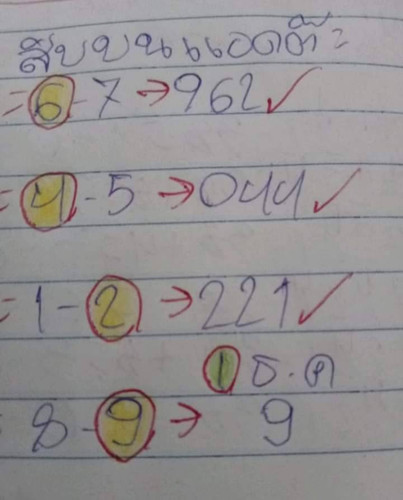 สิบบนแอดต๊ะ
=6-7→962✓
=4-5→044✓
=1-2→221✓
1ธ.ค
8-9→9